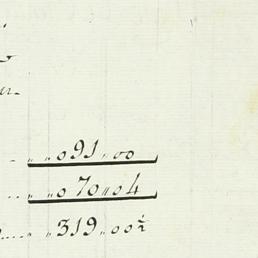 - „ „ 091 „ 00
.. „ „ 070 „ 04
.... „ „ 319 „ 00½